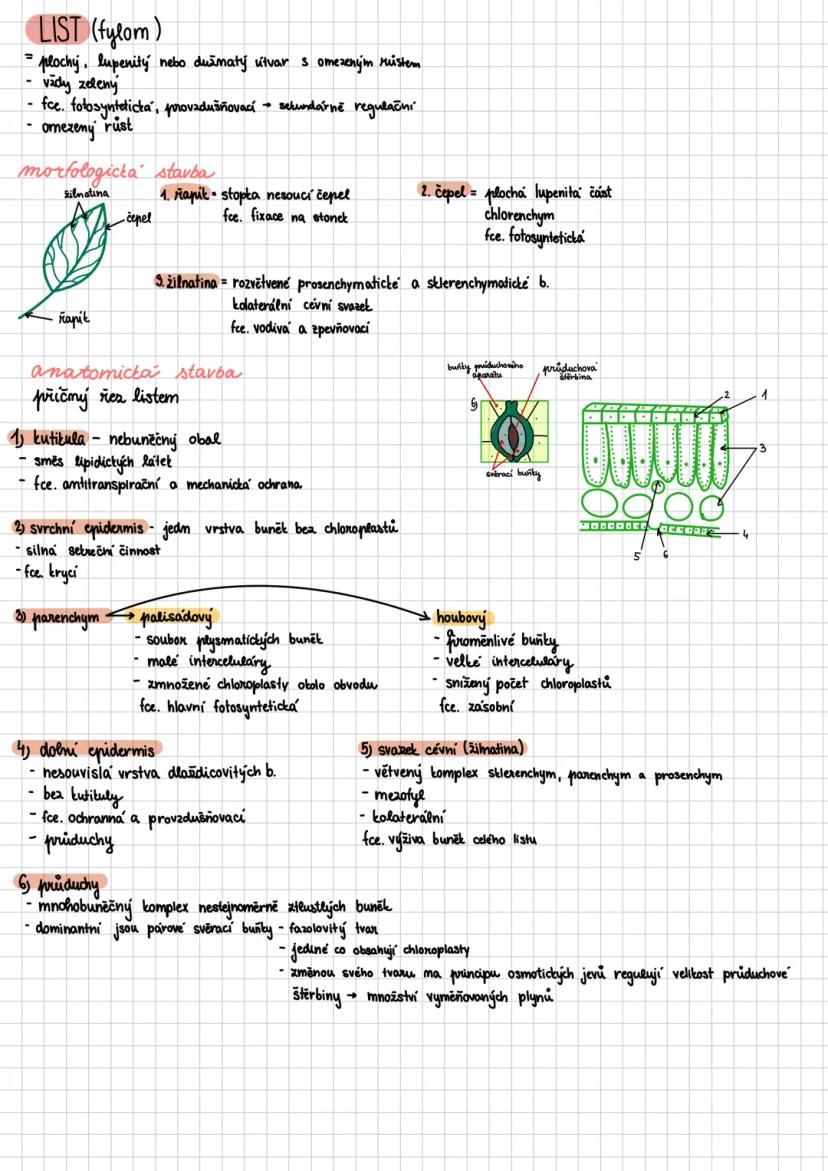 LIST (fylom)
= plochý, lupenitý nebo dužnatý útvar s omezeným růstem
- vždy zelený
- fce. fotosyntetická, provzdušňovací → sekundárně regulační
- omezený růst
morfologická stavba
žilnatina
čepel
řapík
1. řapík = stopka nesoucí čepel
fce. fixace na stonek
2. čepel = plochá lupenitá část
chlorenchym
fce. fotosyntetická
3. žilnatina = rozvětvené prosenchymatické a sklerenchymatické b.
kolaterální cévní svazek
fce. vodivá a zpevňovací
anatomická stavba
příčný řez listem
buňky průduchového
aparátu
průduchová
štěrbina
6)
svěrací buňky
2
1
3
4
5
6
1) kutikula - nebuněčný obal
- směs lipidických látek
- fce. antitranspirační a mechanická ochrana
2) svrchní epidermis - jedn vrstva buněk bez chloroplastů
- silná sekreční činnost
- fce. krycí
3) parenchym → palisádový
- soubor plysmatických buněk
- malé interceluláry
- zmnožené chloroplasty okolo obvodu
fce. hlavní fotosyntetická
houbový
- proměnlivé buňky
- velké interceluláry
- snížený počet chloroplastů
fce. zásobní
4) dolní epidermis
- nesouvislá vrstva dlaždicovitých b.
- bez kutikuly
- fce. ochranná a provzdušňovací
- průduchy
5) svazek cévní (žilnatina)
- větvený komplex sklerenchym, parenchym a prosenchym
- mezofyl
- kolaterální
fce. výživa buněk celého listu
6) průduchy
- mnohobuněčný komplex nestejnoměrně ztlustlých buněk
- dominantní jsou párové svěrací buňky - fazolovitý tvar
- jediné co obsahují chloroplasty
- změnou svého tvaru na principu osmotických jevů regulují velikost průduchové
štěrbiny → množství vyměňovaných plynů